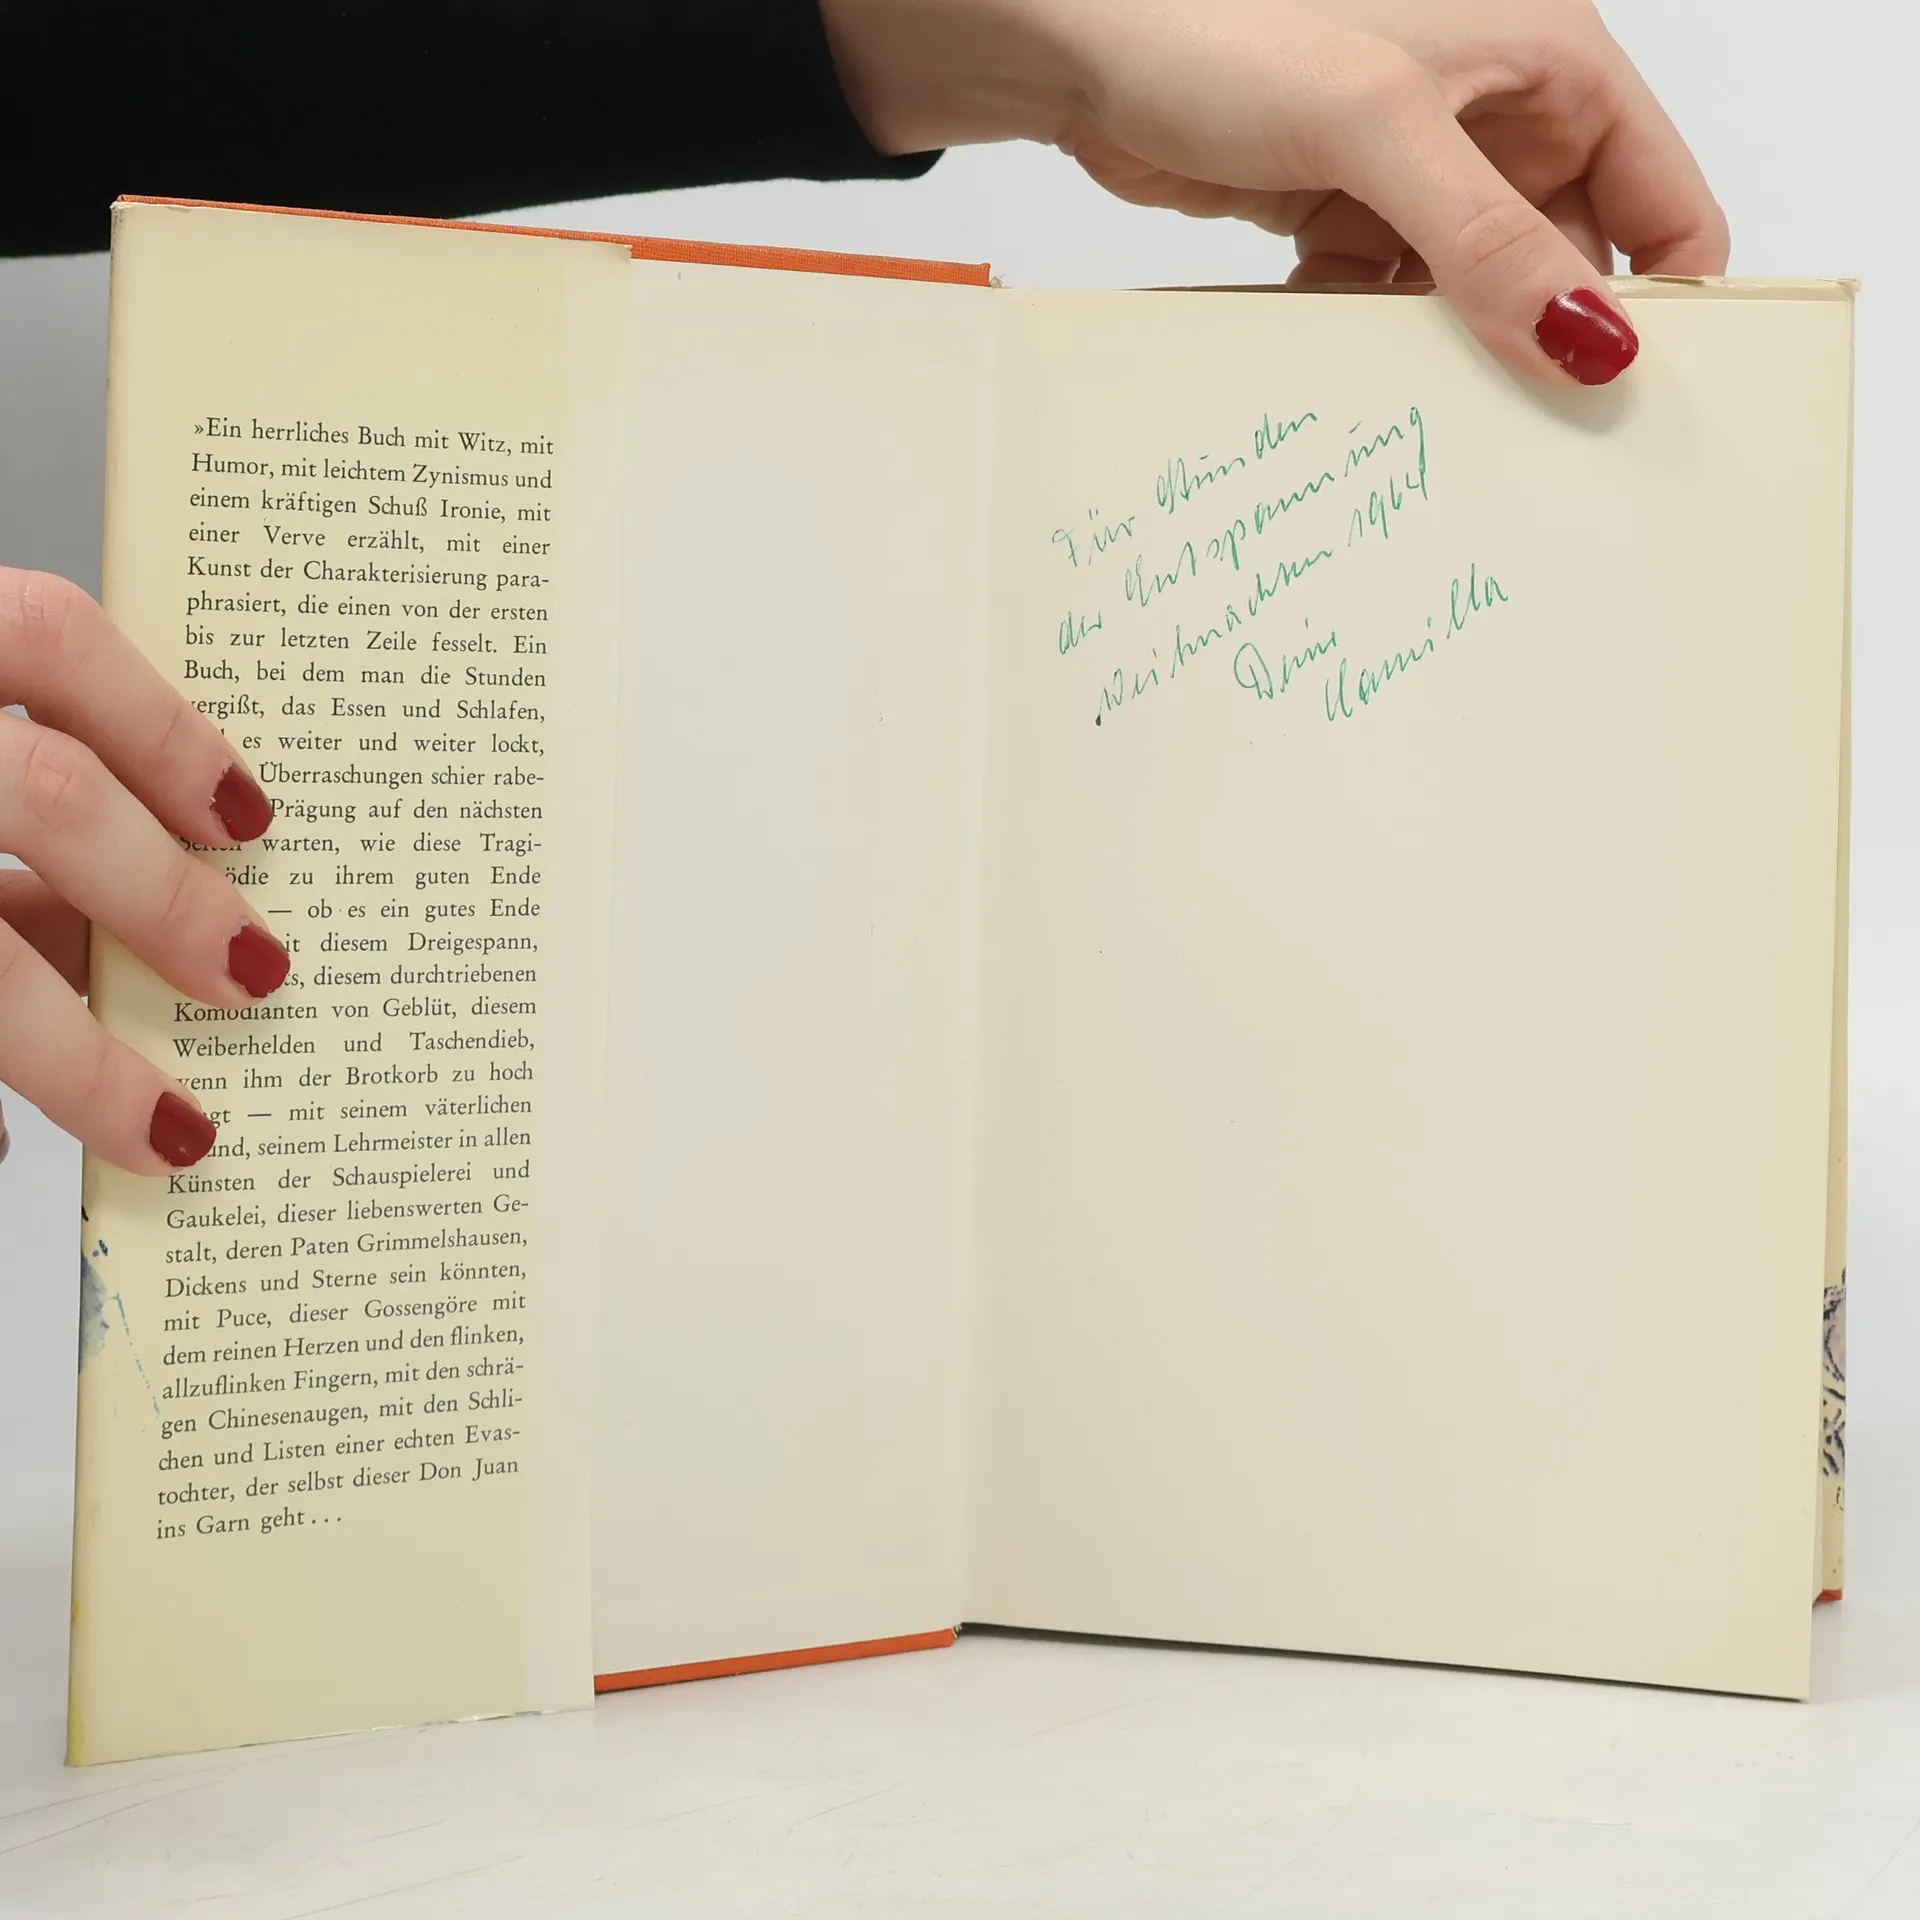 »Ein herrliches Buch mit Witz, mit
Humor, mit leichtem Zynismus und
einem kräftigen Schuß Ironie, mit
einer Verve erzählt, mit einer
Kunst der Charakterisierung para-
phrasiert, die einen von der ersten
bis zur letzten Zeile fesselt. Ein
Buch, bei dem man die Stunden
vergißt, das Essen und Schlafen,
es weiter und weiter lockt,
Überraschungen schier rabe-
Prägung auf den nächsten
Seiten warten, wie diese Tragi-
ödie zu ihrem guten Ende
— ob es ein gutes Ende
diesem Dreigespann,
diesem durchtriebenen
Komödianten von Geblüt, diesem
Weiberhelden und Taschendieb,
wenn ihm der Brotkorb zu hoch
— mit seinem väterlichen
seinem Lehrmeister in allen
Künsten der Schauspielerei und
Gaukelei, dieser liebenswerten Ge-
stalt, deren Paten Grimmelshausen,
Dickens und Sterne sein könnten,
mit Puce, dieser Gossengöre mit
dem reinen Herzen und den flinken,
allzuflinken Fingern, mit den schrä-
gen Chinesenaugen, mit den Schli-
chen und Listen einer echten Evas-
tochter, der selbst dieser Don Juan
ins Garn geht...
Für Stunden
der Entspannung
Weihnachten 1964
Deine
Camilla